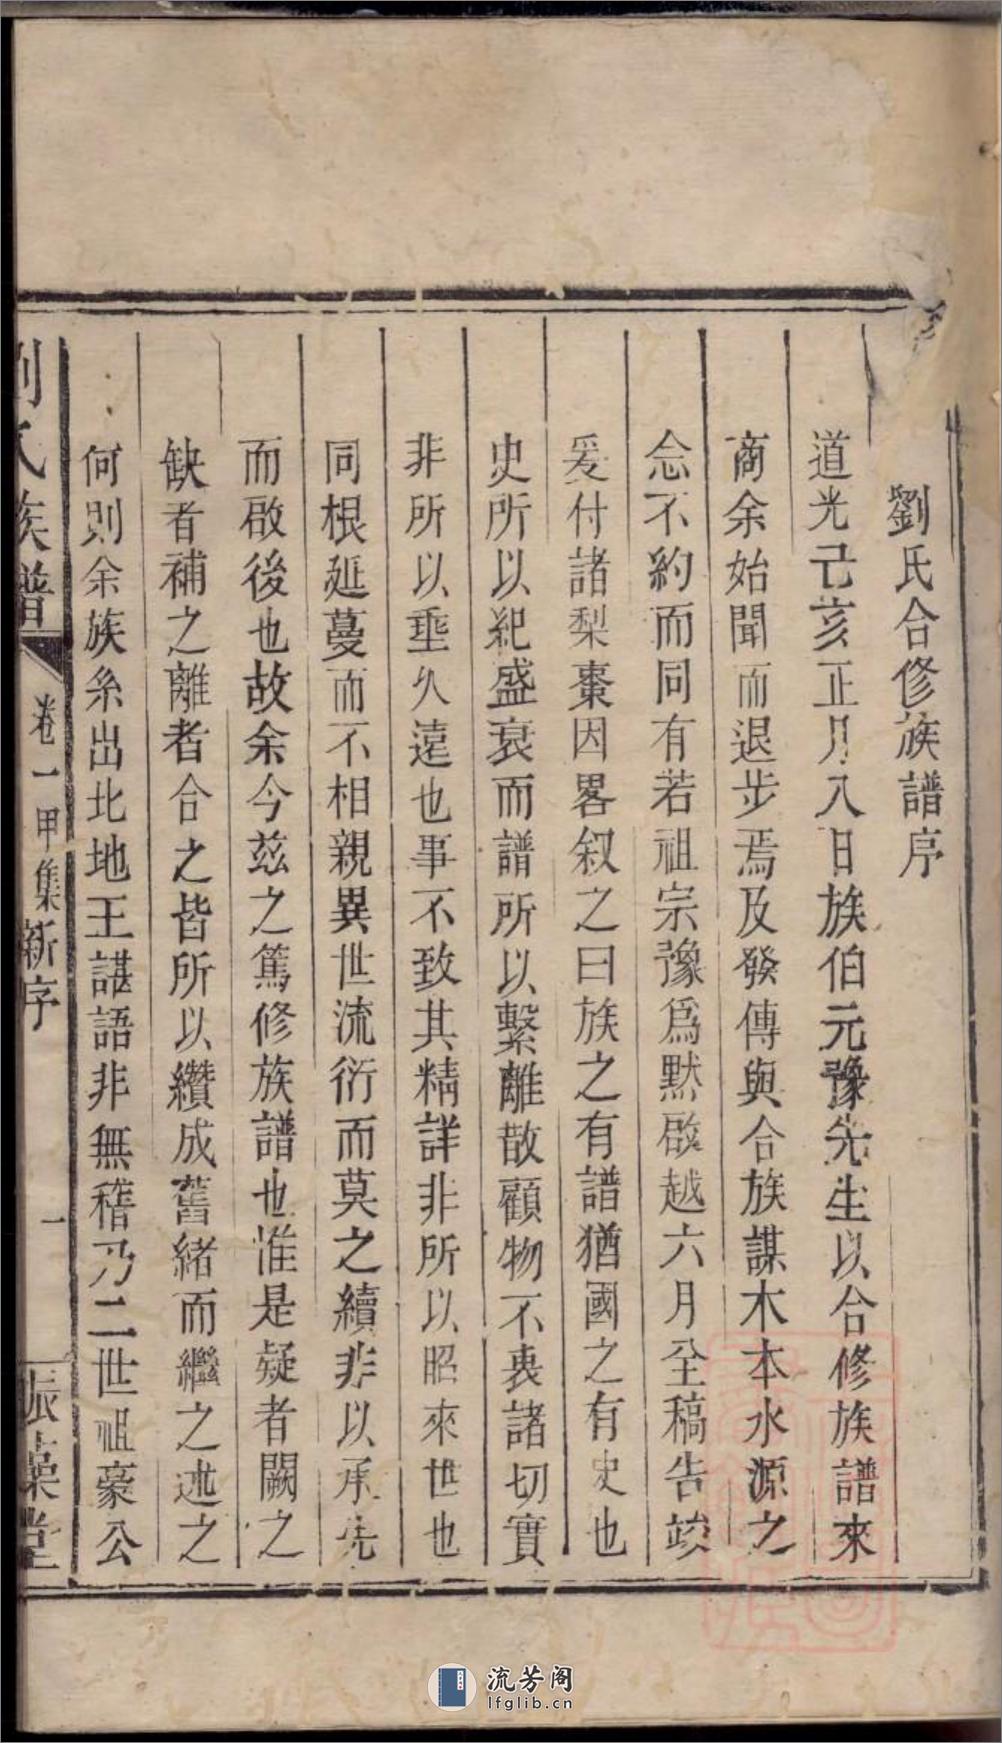 劉氏合修族譜序
道光己亥正月八日族伯元豫先生以合修族譜來
商余始聞而退步焉及發傳與合族謀木本水源之
念不約而同有若祖宗豫為默啟越六月全稿告竣
爰付諸梨棗因畧叙之曰族之有譜猶國之有史也
史所以紀盛衰而譜所以繫離散顧物不衷諸切實
非所以垂久遠也事不致其精詳非所以昭來世也
同根延蔓而不相親異世流衍而莫之續非以承先
而啟後也故余今茲之篤修族譜也惟是疑者闕之
缺者補之離者合之皆所以纘成舊緒而繼之述之
何則余族系出北地王諶語非無稽乃二世祖豪公
劉氏族譜 卷一 甲集 新序 一 振藻堂
流芳阁
lfglib.cn